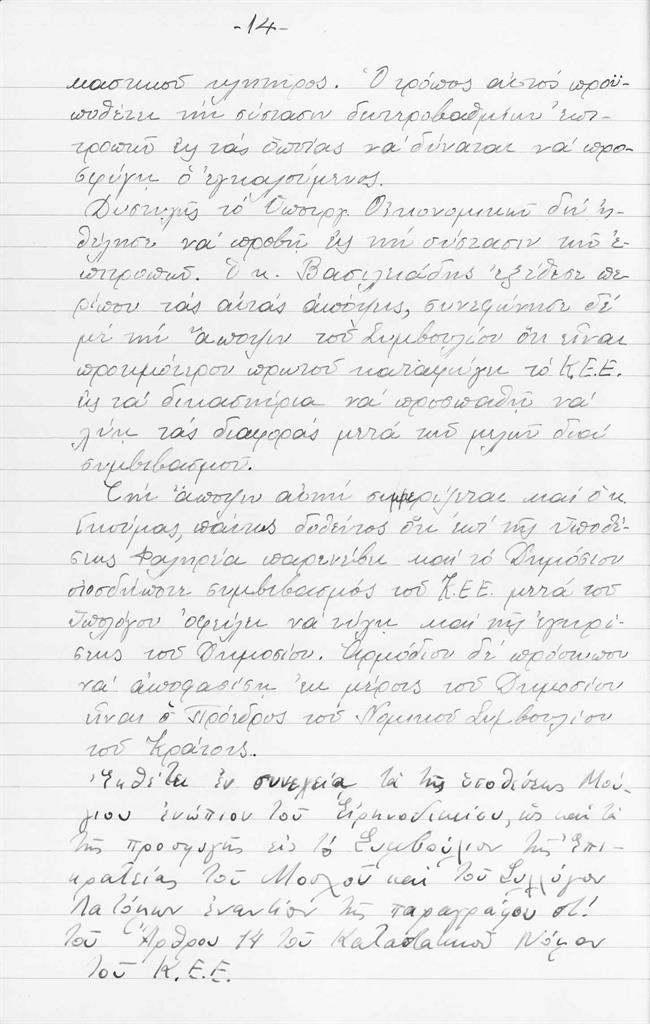 -14-
μαστικοῦ κλητῆρος. Ὁ τρόπος αὐτός προϋ-
ποθέτει τήν σύστασιν δευτεροβαθμίων ἐπι-
τροπῶν εἰς τάς ὁποίας νά δύναται νά προ-
σφύγῃ ὁ ἐγκαλούμενος.
Δυστυχῶς τό Ὑπουργ. Οἰκονομικῶν δέν ἠ-
θέλησε νά προβῇ εἰς τήν σύστασιν τῶν ἐ-
πιτροπῶν. Ὁ κ. Βασιλειάδης ἐξέθεσε πε-
ρίπου τάς αὐτάς ἀπόψεις, συνεφώνησε δέ
μέ τήν ἄποψιν τοῦ Συμβουλίου ὅτι εἶναι
προτιμότερον πρωτοῦ καταφύγῃ τό Κ.Ε.Ε.
εἰς τά δικαστήρια νά προσπαθῇ νά
λύῃ τάς διαφοράς μετά τῶν μελῶν διά
συμβιβασμοῦ.
Τήν ἄποψιν αὐτήν συμμερίζεται καί ὁ κ.
Γκούμας, πάντως δοθέντος ὅτι ἐπί τῆς ὑποθέ-
σεως Φαληρέα παρενέβη καί τό Δημόσιον
οἱοσδήποτε συμβιβασμός τοῦ Κ.Ε.Ε. μετά τοῦ
ὑπολόγου ὀφείλει νά τύχῃ καί τῆς ἐγκρί-
σεως τοῦ Δημοσίου. Ἁρμόδιον δέ πρόσωπον
νά ἀποφασίσῃ ἐκ μέρους τοῦ Δημοσίου
εἶναι ὁ Πρόεδρος τοῦ Νομικοῦ Συμβουλίου
τοῦ Κράτους.
Ἐκθέτει ἐν συνεχείᾳ τά τῆς ὑποθέσεως Μού-
γιου ἐνώπιον τοῦ Εἰρηνοδικείου, ὡς καί τά
τῆς προσφυγῆς εἰς τό Συμβούλιον τῆς Ἐπι-
κρατείας τοῦ Μοσχοῦ καί τοῦ Συλλόγου
Λατόμων ἐναντίον τῆς παραγράφου στ΄
τοῦ Ἄρθρου 14 τοῦ Καταστατικοῦ Νόμου
τοῦ Κ.Ε.Ε.